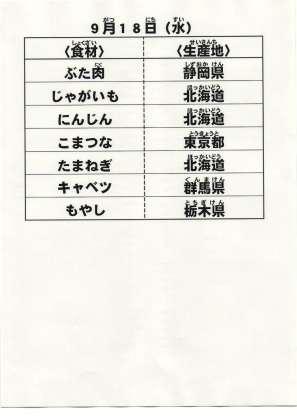 9月18日（水）
〈食材〉 〈生産地〉
ぶた肉 静岡県
じゃがいも 北海道
にんじん 北海道
こまつな 東京都
たまねぎ 北海道
キャベツ 群馬県
もやし 栃木県